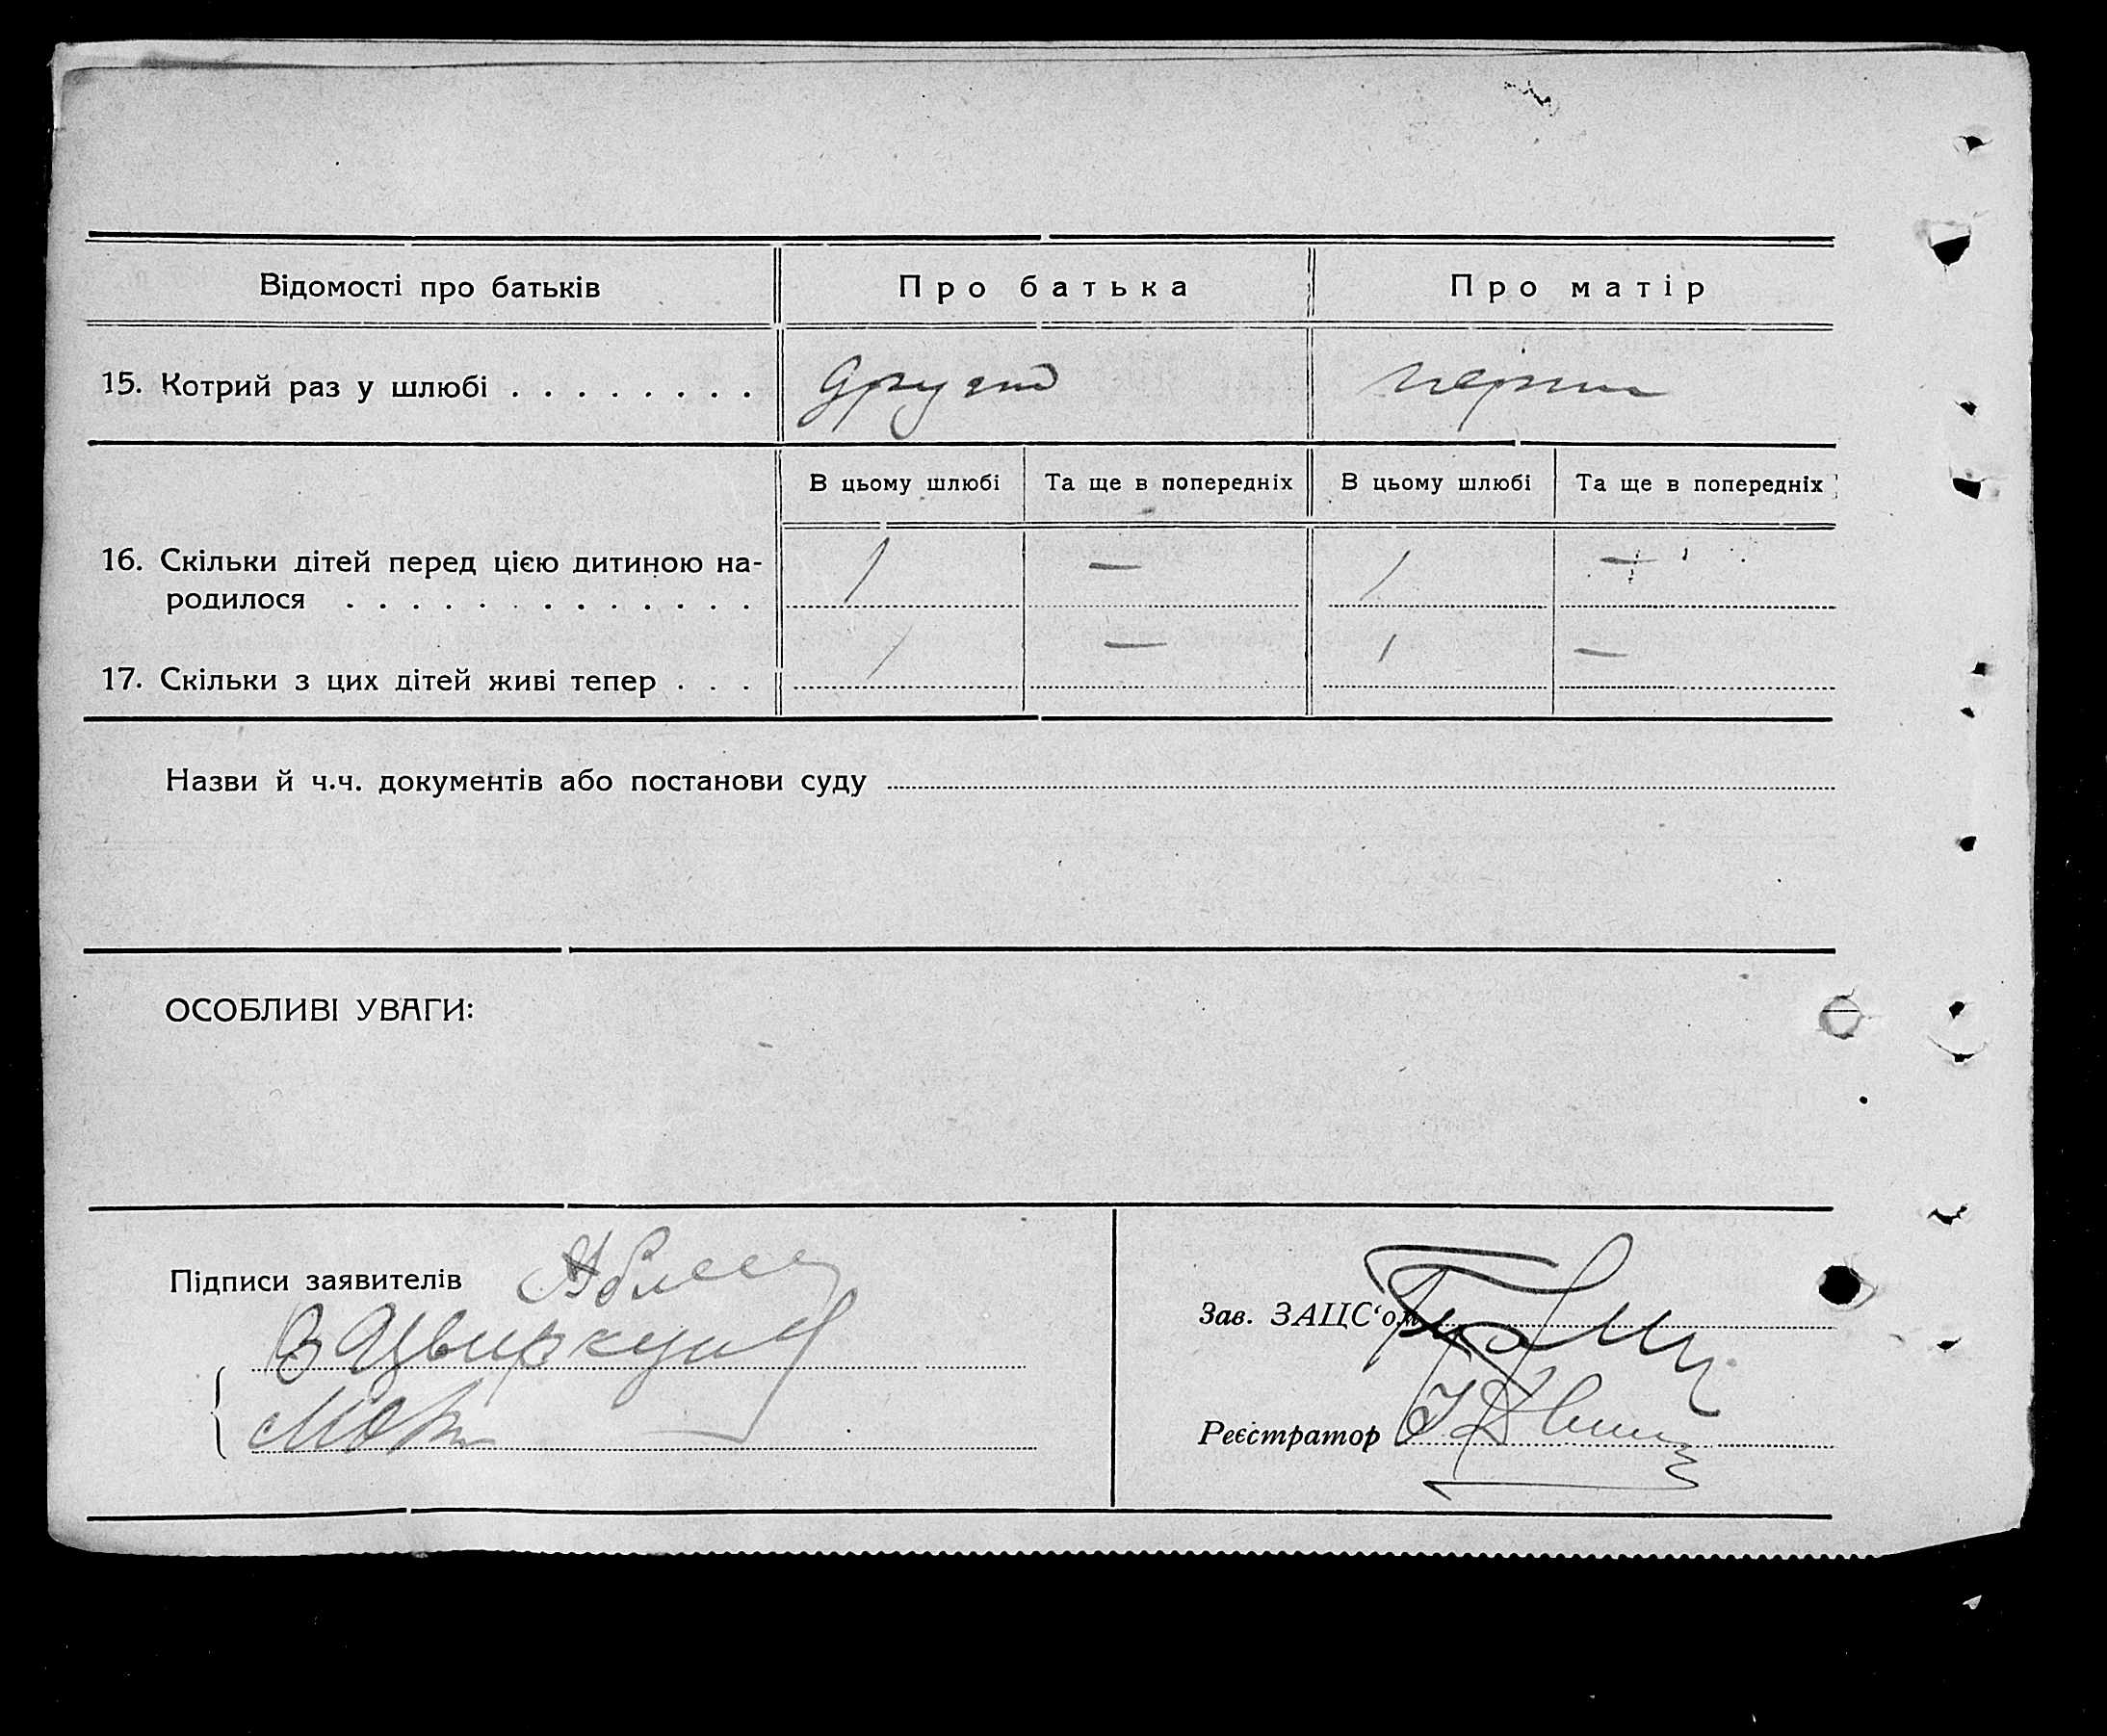 Відомості про батьків
Про батька
Про матір
15. Котрий раз у шлюбі . . . . . . . .
другий
В цьому шлюбі
Та ще в попередніх
В цьому шлюбі
Та ще в попередніх
16. Скільки дітей перед цією дитиною на-
родилося . . . . . . . . . . . . .
1 — 1 —
17. Скільки з цих дітей живі тепер . . .
1 — 1 —
Назви й ч.ч. документів або постанови суду
ОСОБЛИВІ УВАГИ:
Підписи заявителів
Зав. ЗАЦС‘ом
Реєстратор